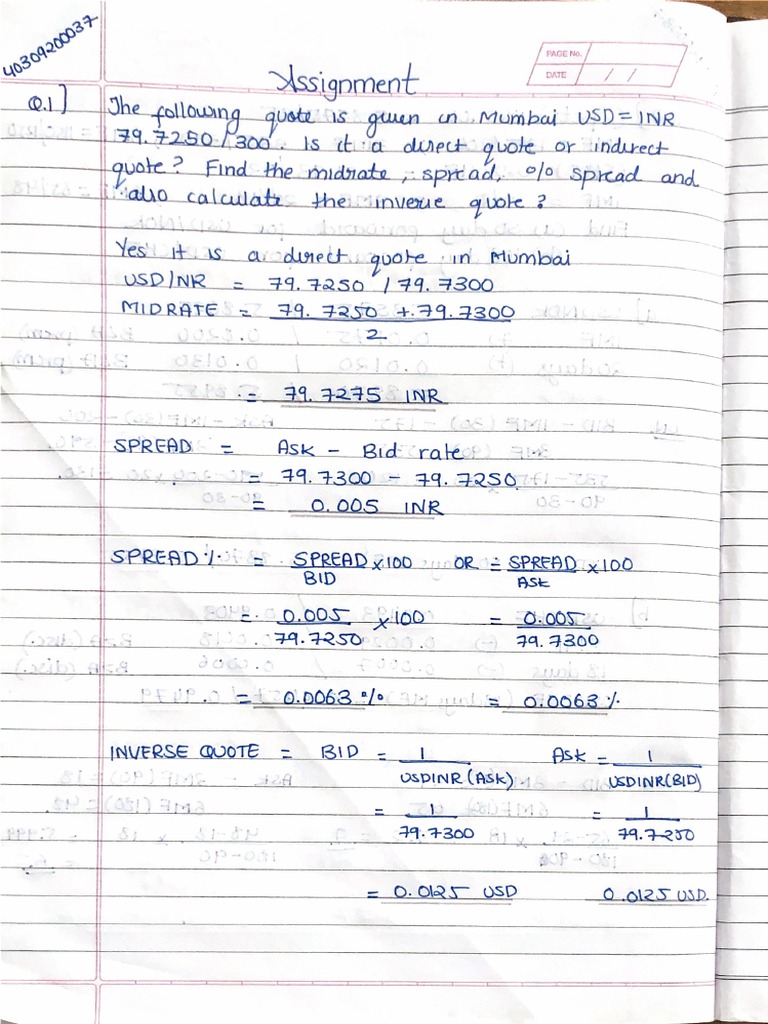 40309200037
PAGE No.
DATE / /
Assignment
Q.1] The following quote is given in Mumbai USD = INR
79.7250 / 300. Is it a direct quote or indirect
quote? Find the midrate, spread, % spread and
also calculate the inverse quote?
Yes it is a direct quote in Mumbai
USD/NR = 79.7250 / 79.7300
MIDRATE = 79.7250 + 79.7300
2
= 79.7275 INR
SPREAD = Ask - Bid rate
= 79.7300 - 79.7250
= 0.005 INR
SPREAD % = SPREAD x100 OR = SPREAD x 100
BID ASK
= 0.005 x100 = 0.005
79.7250 79.7300
= 0.0063 % = 0.0063 %
INVERSE QUOTE = BID = 1 ASK = 1
USDINR (ASK) USDINR (BID)
= 1 = 1
79.7300 79.7250
= 0.0125 USD 0.0125 USD.